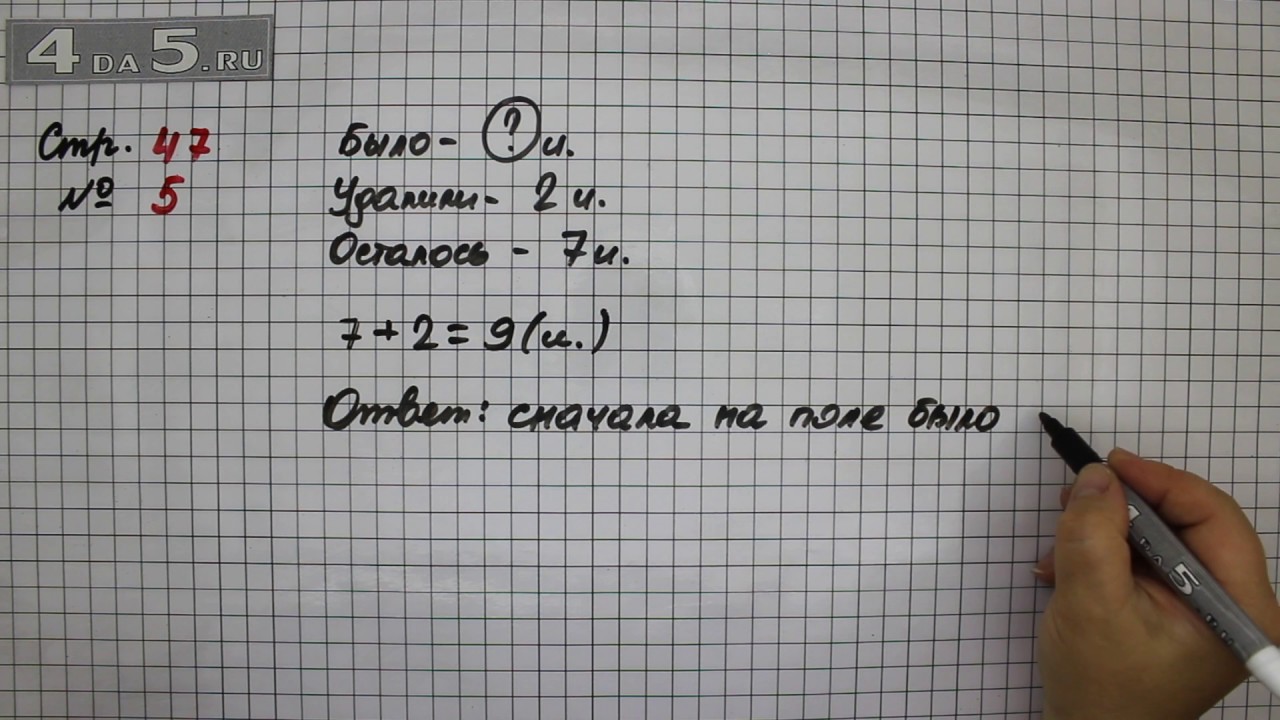 4DA5.RU
Стр. 47
№ 5
Было - ? и.
Удалили - 2 и.
Осталось - 7 и.
7 + 2 = 9 (и.)
Ответ: сначала на поле было